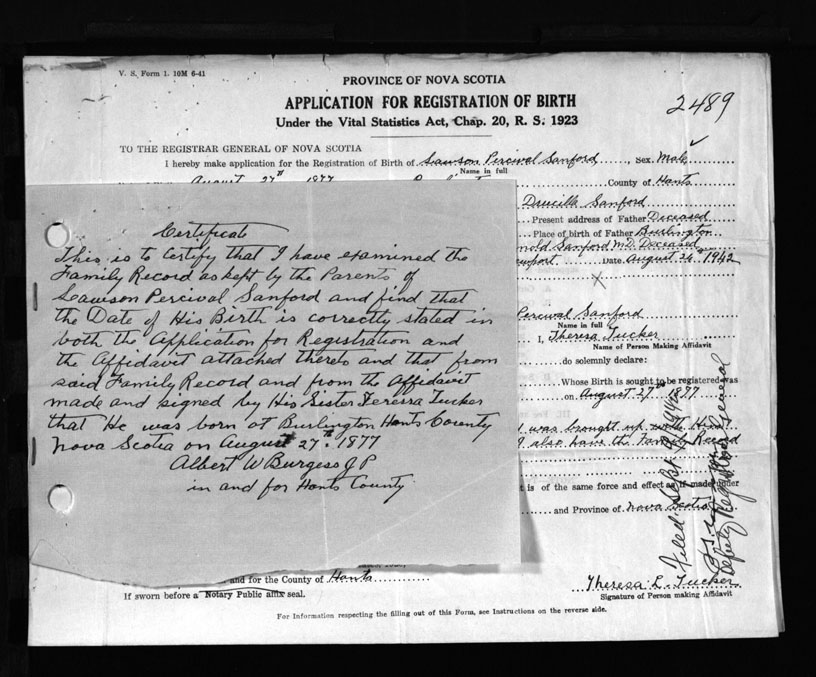 V. S. Form 1. 10M 6-41
PROVINCE OF NOVA SCOTIA
APPLICATION FOR REGISTRATION OF BIRTH
2489
Under the Vital Statistics Act, Chap. 20, R. S. 1923
TO THE REGISTRAR GENERAL OF NOVA SCOTIA
I hereby make application for the Registration of Birth of Lawson Percival Sanford, Sex Male
Name in full
August 27th 1877 County of Hants
Drucilla Sanford
Present address of Father Deceased
Place of birth of Father Burlington
Sanford M.D. Deceased
Date August 24th 1942
Certificate
This is to Certify that I have examined the
Family Record as kept by the Parents of
Lawson Percival Sanford and find that
the Date of His Birth is correctly stated in
both the Application for Registration and
the Affidavit attached thereto and that from
said Family Record and from the Affidavit
made and signed by His Sister Teressa Tucker
that He was born at Burlington Hants County
Nova Scotia on August 27th 1877
Albert W Burgess J P
in and for Hants County
Percival Sanford
Name in full
I, Theresa Tucker
Name of Person Making Affidavit
do solemnly declare:
Whose Birth is sought to be registered was
on August 27th 1877
was brought up with Him
I also have the Family Record
is of the same force and effect as if made under
and Province of Nova Scotia
Filed: Sept.
Deputy Registrar General
and for the County of Hants
If sworn before a Notary Public affix seal.
Theresa L. Tucker
Signature of Person making Affidavit
For Information respecting the filling out of this Form, see Instructions on the reverse side.